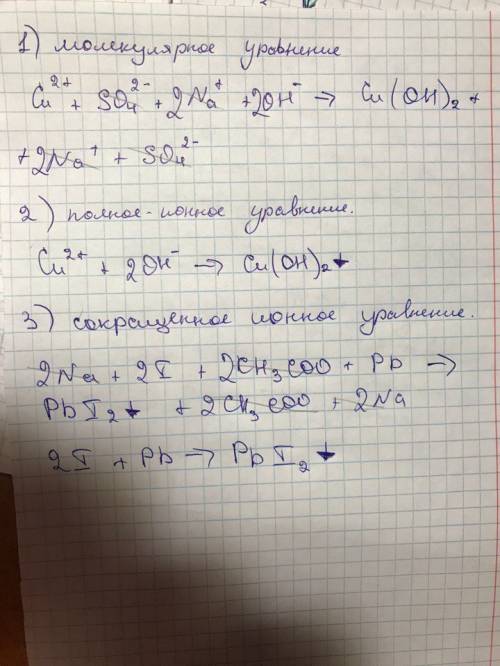 1) молекулярное уравнение
Cu²⁺ + SO₄²⁻ + 2Na⁺ + 2OH⁻ → Cu(OH)₂ ↓
+ 2Na⁺ + SO₄²⁻
2) полное-ионное уравнение.
Cu²⁺ + 2OH⁻ → Cu(OH)₂↓
3) сокращенное ионное уравнение.
2Na + 2I + 2CH₃COO + Pb →
PbI₂↓ + 2CH₃COO + 2Na
2I + Pb → PbI₂↓